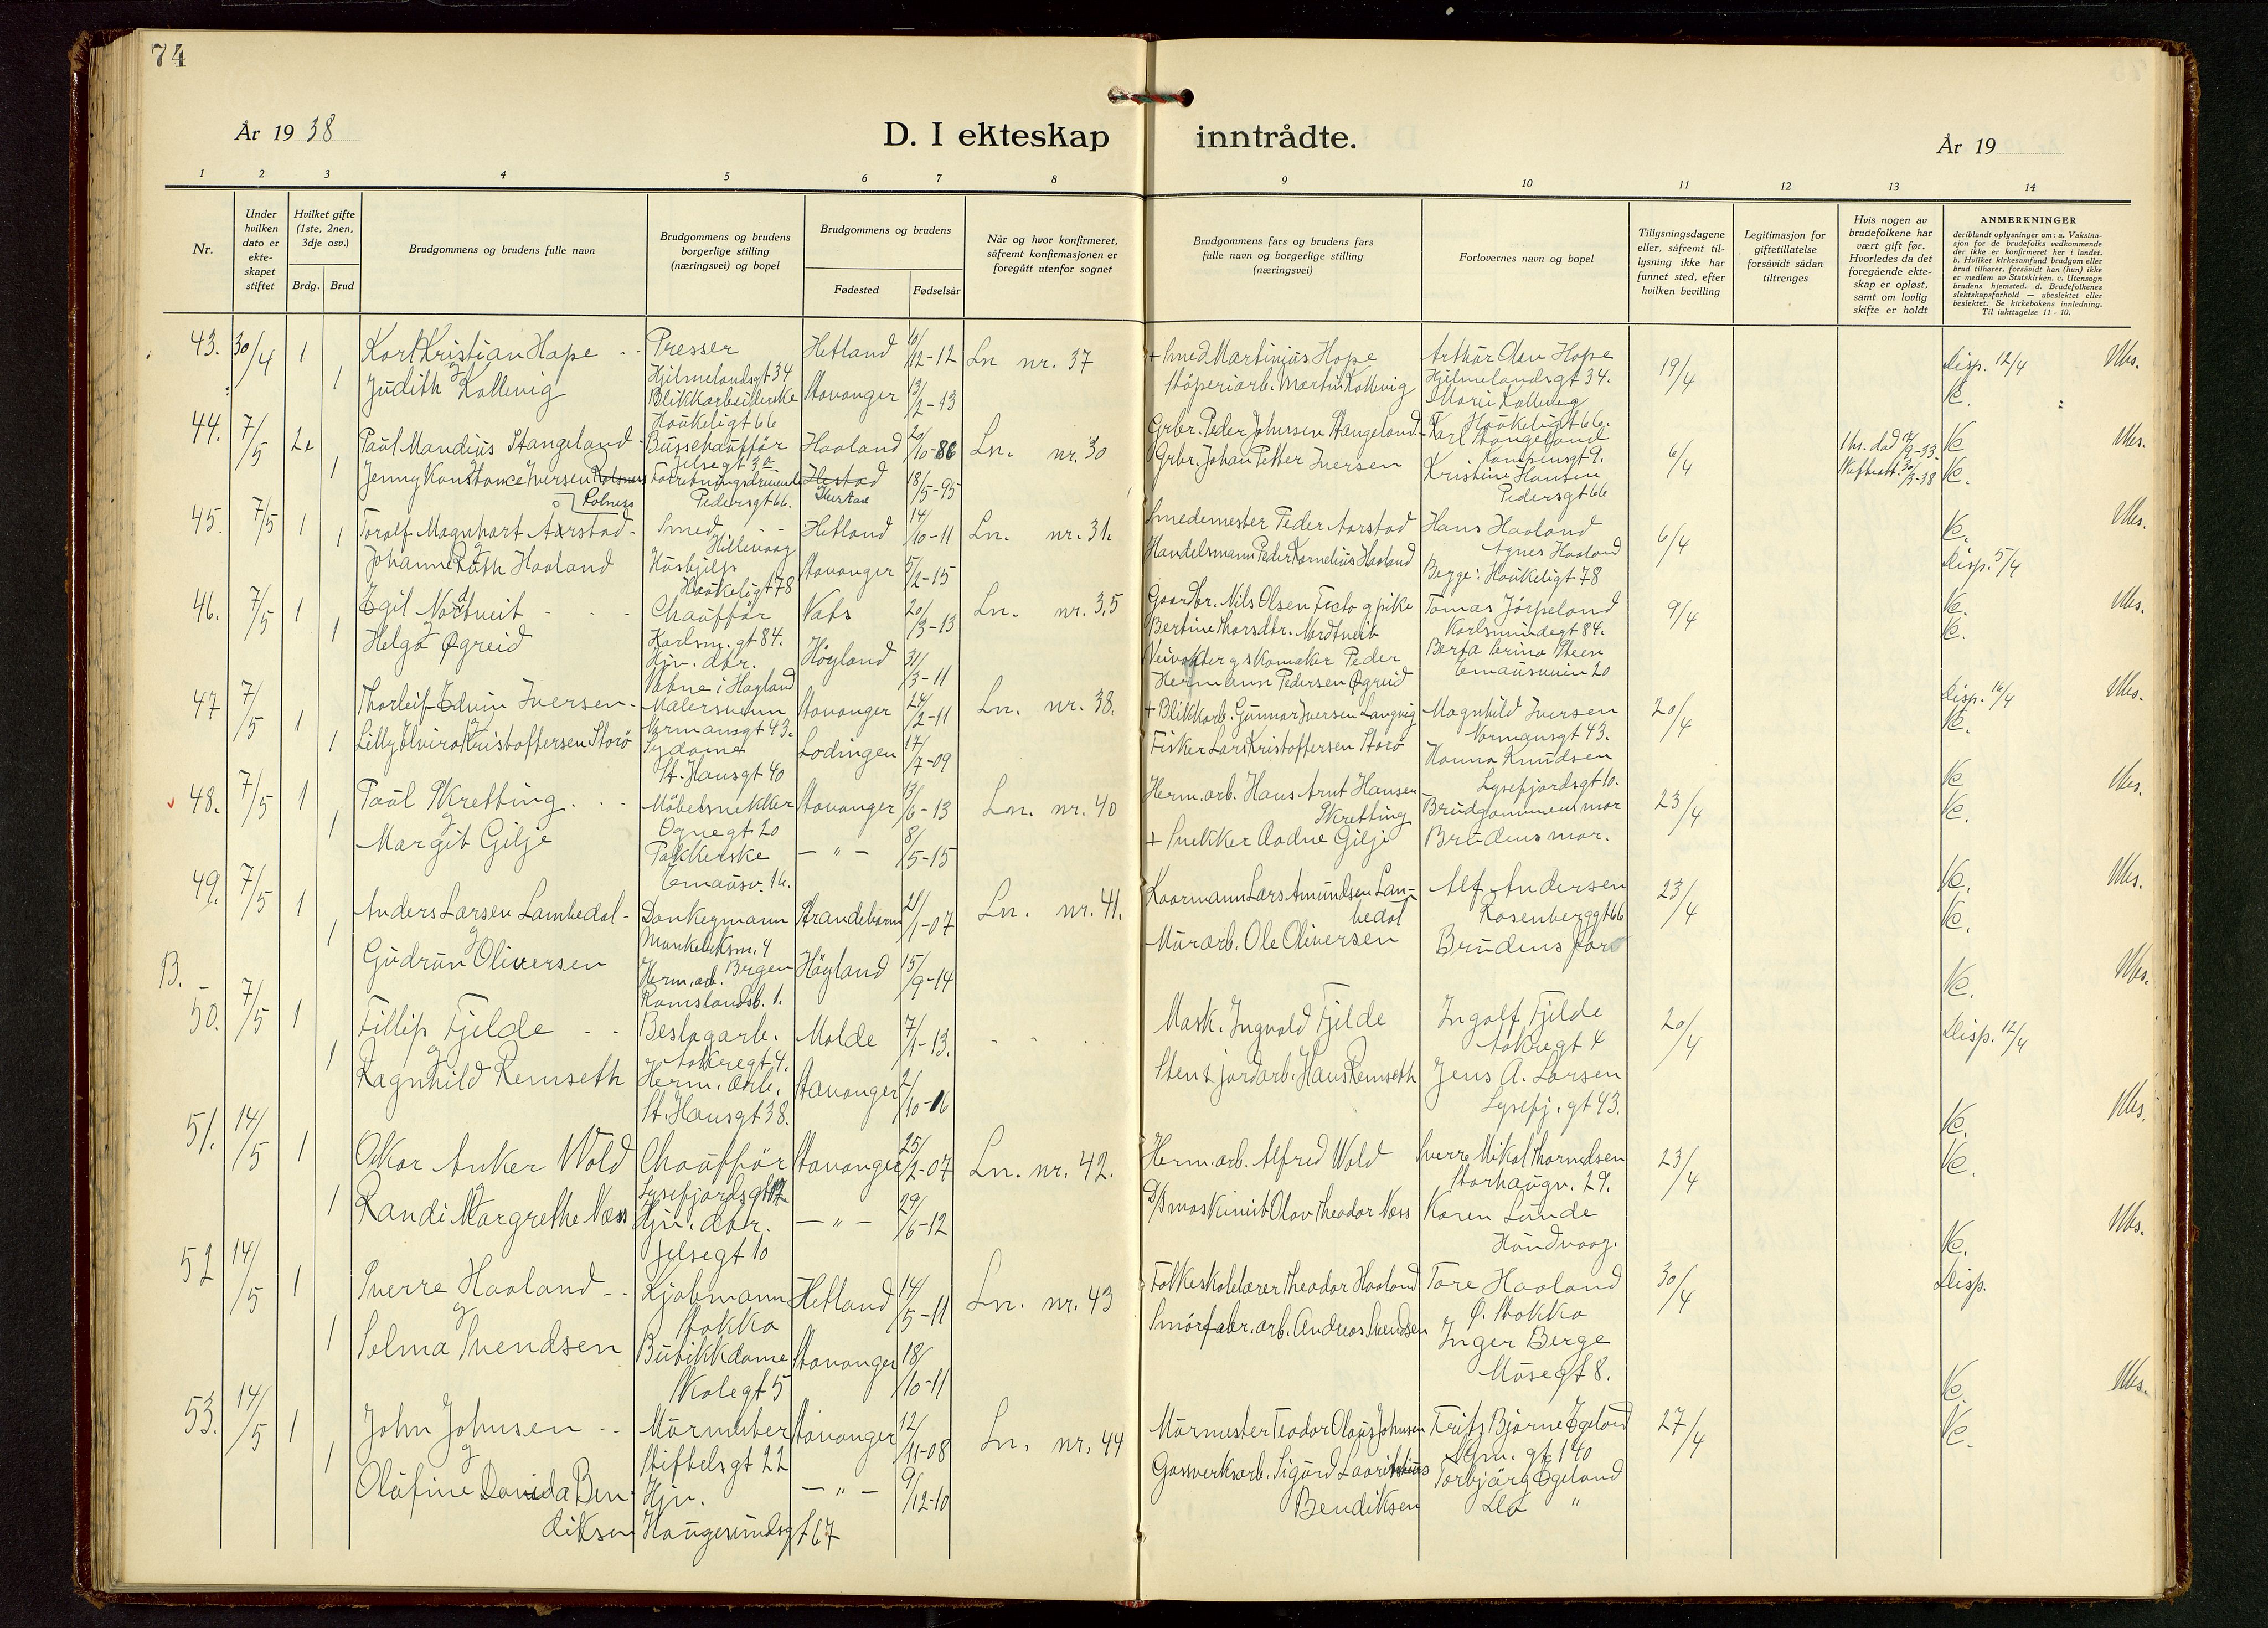 74
År 19 38
D. I ekteskap inntrådte.
År 19
1 2 3 4 5 6 7 8 9 10 11 12 13 14
Nr.
Under hvilken dato er ekte-skapet stiftet
Hvilket gifte (1ste, 2nen, 3dje osv.)
Brdg. Brud
Brudgommens og brudens fulle navn
Brudgommens og brudens borgerlige stilling (næringsvei) og bopel
Brudgommens og brudens
Fødested Fødselsår
Når og hvor konfirmeret, såfremt konfirmasjonen er foregått utenfor sognet
Brudgommens fars og brudens fars fulle navn og borgerlige stilling (næringsvei)
Forlovernes navn og bopel
Tillysningsdagene eller, såfremt til-lysning ikke har funnet sted, efter hvilken bevilling
Legitimasjon for giftetillatelse forsåvidt sådan tiltrenges
Hvis nogen av brudefolkene har vært gift før. Hvorledes da det foregående ekte-skap er opløst, samt om lovlig skifte er holdt
ANMERKNINGER
deriblandt oplysninger om: a. Vaksina-sjon for de brudefolks vedkommende der ikke er konfirmeret her i landet. b. Hvilket kirkesamfund brudgom eller brud tilhører, forsåvidt han (hun) ikke er medlem av Statskirken. c. Utensogn brudens hjemsted. d. Brudefolkenes slektskapsforhold — ubeslektet eller beslektet. Se kirkebokens innledning. Til iakttagelse 11 - 10.
43. 30/4 1 Karl Kristian Hope Presser Hetland 10/12-12 Ln nr. 37 + Smed Martinius Hope Arthur Olav Hope 19/4 Disp. 12/4 Ubs.
Hjelmelandsgt 34 Hjelmelandsgt 34.
1 Judith Kallevig Stavanger 13/2-13 Støperiarb. Martin Kallevig Marie Kallevig
Haukeligt 66 Haukeligt 66.
44. 7/5 2e Paul Mandius Stangeland Busschauffør Haaland 20/10-86 Ln. nr. 30 Grbr. Peder Johnsen Stangeland Karl Stangeland 6/4 Ubs.
Jelsegt 3a Kampensgt 9.
1 Jenny Konstance Iversen Rolsness 18/5-95 Grbr. Johan Petter Iversen Kristine Hansen
Rolness Pedersgt 66. Pedersgt 66
45. 7/5 1 Torolf Magnhart Aarstad Smed Hetland 14/10-11 Ln. nr. 31. Smedemester Peder Aarstad Hans Haaland 6/4 Ubs.
Hillevaag Agnes Haaland
1 Johanne Ruth Haaland Hushjelp Stavanger 5/2-15 Handelsmann Peder Kornelius Haaland Disp. 5/4
Haukeligt 78 Begge: Haukeligt 78
46. 7/5 1 Egil Nordtveit Chauffør Vats 20/3-13 Ln. nr. 35 Gaardbr. Nils Olsen pike Tomas Jørpeland 9/4 Ubs.
Karlsm. gt 84. Bertine Thorsdtr. Nordtveit Karlsmindegt 84.
1 Helga Øgreid Hjv. dtr. Høyland 31/3-11 Peder Berta Steen
Hermann Pedersen Øgreid Emausveien 20
47 7/5 1 Thorleif Edvin Iversen Malersvenn Stavanger 24/2-11 Ln. nr. 38. + Blikkarb. Gunnar Iversen Langvig Magnhild Iversen 20/4 Disp. 16/4 Ubs.
Normansgt 43. Normansgt 43.
1 Lilly Elvira Kristoffersen Storø Sydame Lødingen 17/7-09 Fisker Lars Kristoffersen Storø Hanna Knudsen
St. Hansgt 40 Lysefjordsgt 10.
48. 7/5 1 Paul Skretting Møbelsnekker Stavanger 13/6-13 Ln. nr. 40 Herm. arb. Hans Arnt Hansen Skretting Brudgommens mor 23/4 Ubs.
Ognegt 20
1 Margit Gilje Pakkerske — " — 8/5-15 + Snekker Aadne Gilje Brudens mor.
Emausv. 16.
49. 7/5 1 Anders Larsen Lambedal Donkeymann Strandebarm 21/1-07 Ln. nr. 41. Lars Amundsen Lam-bedal Alf Andersen 23/4 Ubs.
Rosenberggt 66
1 Gudrun Oliversen Herm. arb. Høyland 15/9-14 Murarb. Ole Oliversen Brudens far
Ramslandsb. 1.
B.
50. 7/5 1 Fillip Fjelde Beslagarb. Molde 7/1-13. Mask. Ingvald Fjelde Ingolf Fjelde 20/4 Ubs.
1 Ragnhild Remseth Herm. arb. Stavanger 2/10-16 Sten & jordarb. Hans Remseth Jens A. Larsen Disp. 12/4
St. Hansgt 38. Lysefj. gt 43.
51. 14/5 1 Oskar Anker Wold Chauffør Stavanger 25/2-07 Ln. nr. 42. Herm. arb. Alfred Wold Sverre Mikal Thorndsen 23/4 Ubs.
Storhaugv. 29.
1 Randi Margrethe Næss Hjv. dtr. — " — 29/6-12 Olav Theodor Næss Karen Lunde
Jelsegt 10 Hundvaag.
52 14/5 1 Sverre Haaland Kjøbmann Hetland 14/5-11 Ln. nr. 43 Folkeskolelærer Theodor Haaland Tore Haaland 30/4 Ubs.
Stokka Ø. Stokka
1 Selma Svendsen Butikkdame Stavanger 18/10-11 Smørfabr. arb. Andreas Svendsen Inger Berge Disp.
Skolegt 5 Musegt 8.
53. 14/5 1 John Johnsen Murmester Stavanger 12/11-08 Ln. nr. 44 Murmester Teodor Olaus Johnsen Fritz Bjarne Egeland 27/4 Ubs.
Stiftelsgt 22
1 Olufine Davida Ben-diksen Hjv. — " — 9/12-10 Gassverksarb. Sigurd Bendiksen Torbjørg Egeland
Haugesundsgt 67